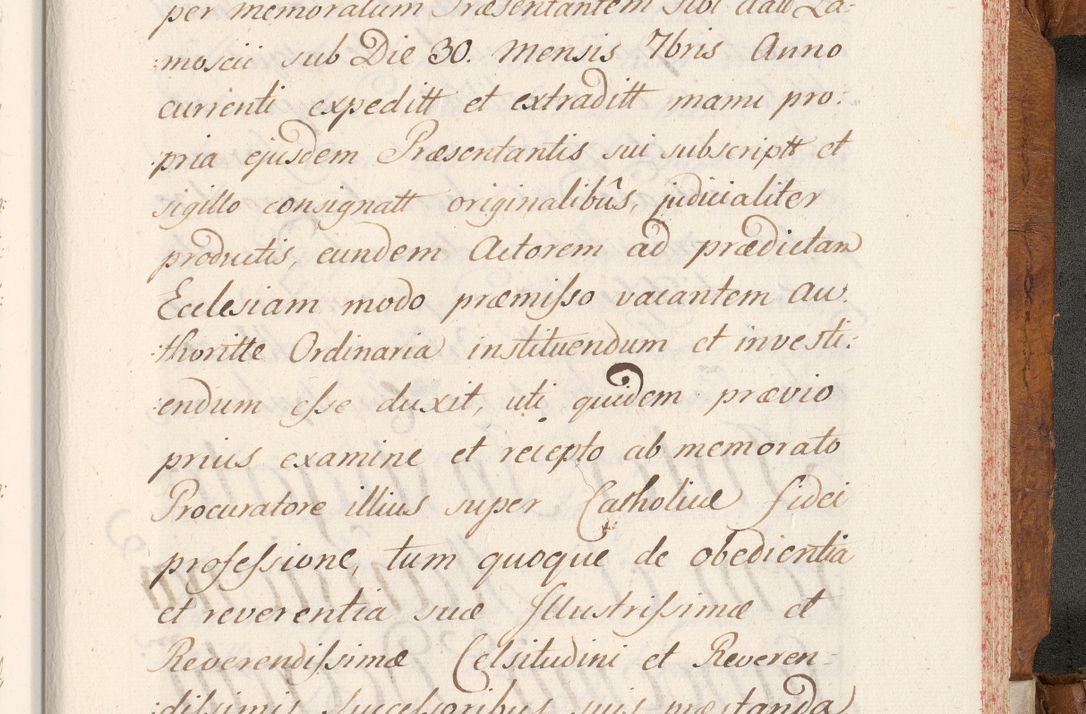 per memoratum Præsentantem sibi datt Za-
moscii sub Die 30. Mensis 7bris Anno
currenti expeditt et extraditt manu pro:
pria ejusdem Præsentantis sui subscriptt et
sigillo consignatt originalibûs, judicialiter
productis, eundem Actorem ad prædictam
Ecclesiam modo præmisso vacantem Au:
thoritte Ordinaria instituendum et investi:
endum esse duxit, uti quidem prævio
prius examine et recepto ab memorato
Procuratore illius super Catholicæ fidei
professione, tum quoque de obedientia
et reverentia suæ Illustrissimæ et
Reverendissimæ Celsitudini et Reveren-
dissimis Successoribus suis præstanda